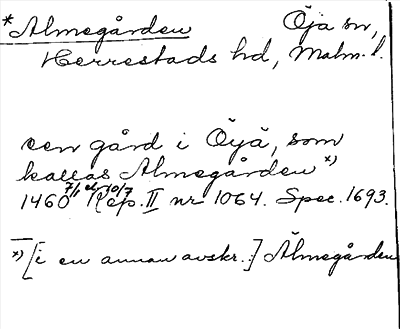 *Almegården Öja sn,
Herrestads hd, Malm. l.
en gård i Öyä, som
kallas Almegården *)
1460 7/1 el. 10/7 Rep. II nr 1064. Spec. 1693.
*) [i en annan avskr.:] Älmegården